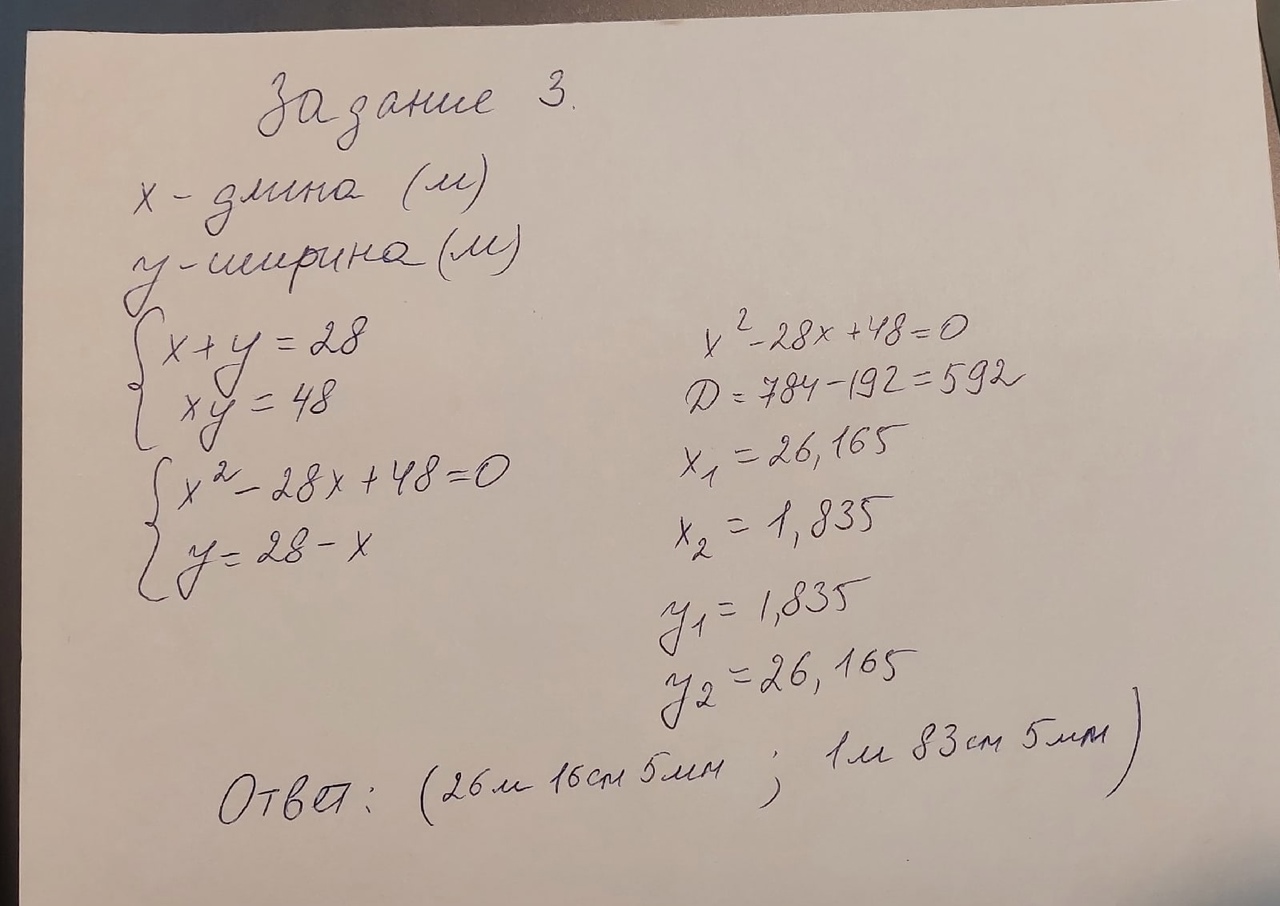 Задание 3.
x - длина (м)
y - ширина (м)
x + y = 28
xy = 48
x² - 28x + 48 = 0
y = 28 - x
x² - 28x + 48 = 0
D = 784 - 192 = 592
x₁ = 26,165
x₂ = 1,835
y₁ = 1,835
y₂ = 26,165
Ответ: (26м 16см 5мм ; 1м 83см 5мм)